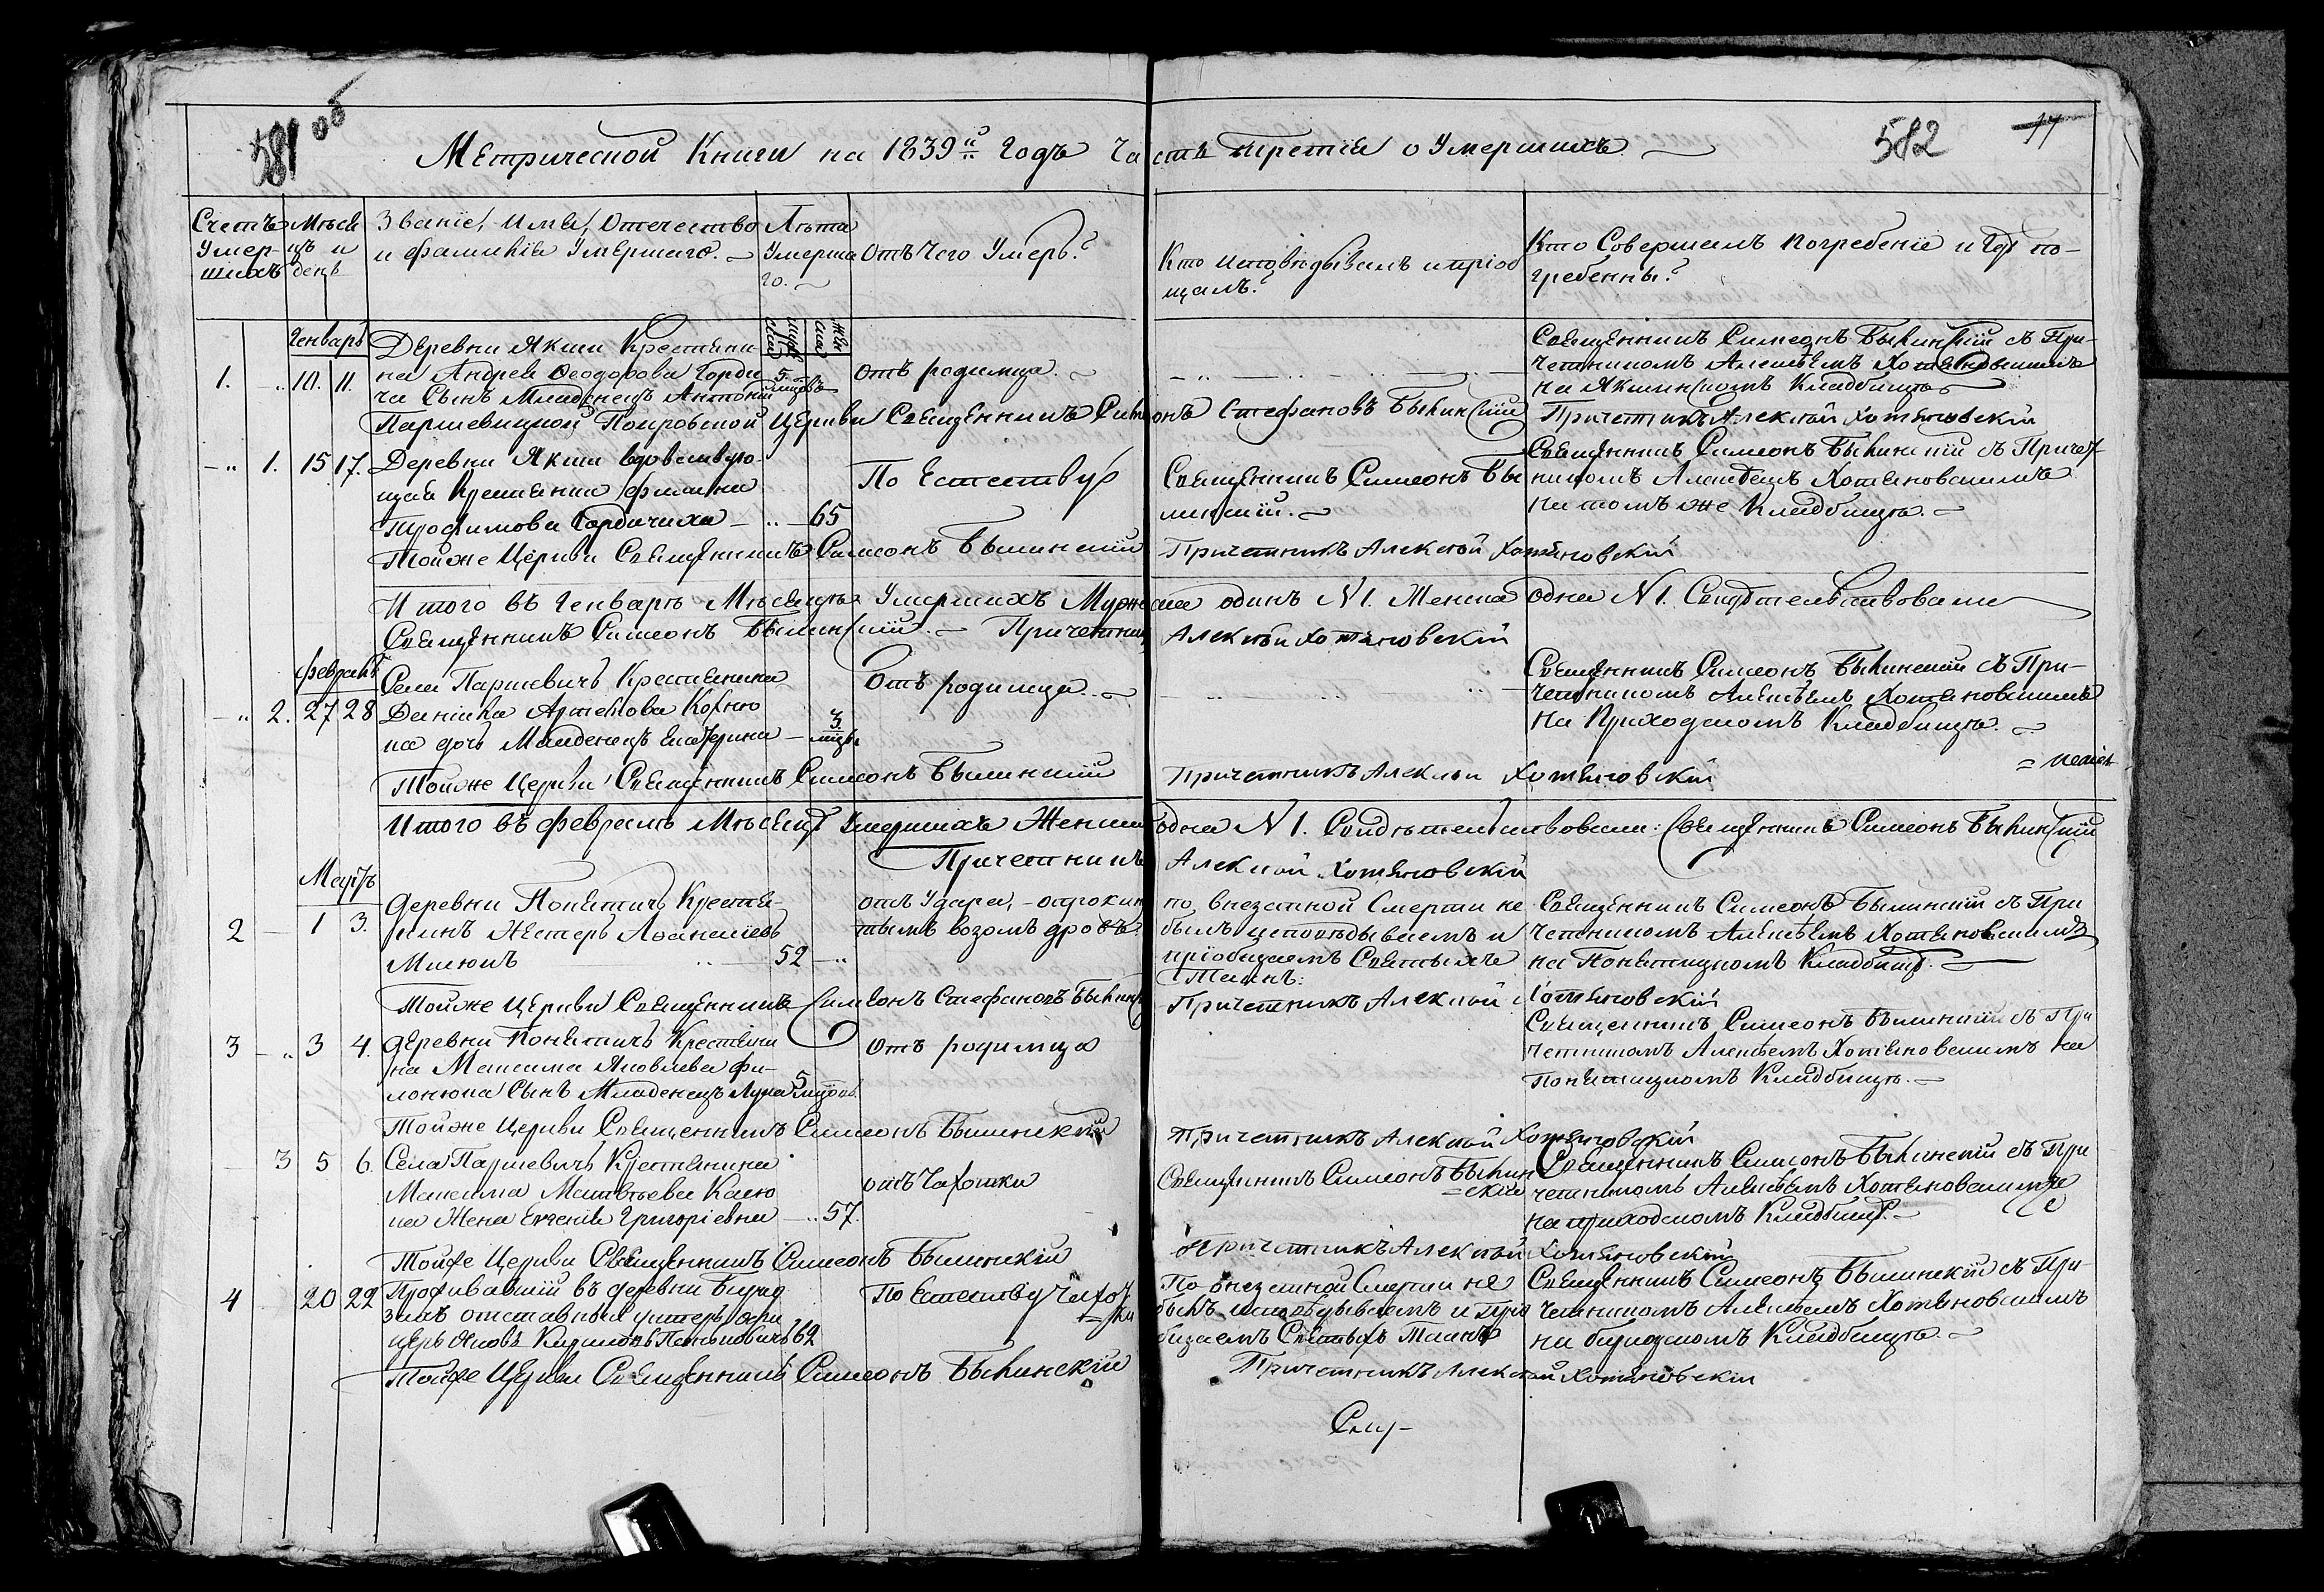 581 об
582
77
Метрической Книги на 1839й Годъ Часть третія о Умершихъ.
Счетъ Умер-шихъ
Мѣсяцъ и день
Званіе, Имя, Отечество
и фамилія Умершаго.
Лѣта
Умерша
го.
Отъ Чего Умеръ?
Кто исповѣдывалъ и пріоб
щалъ?
Кто Совершалъ погребеніе и Гдѣ по-
гребенны?
Генварь
1. 10. 11.
Деревни Якши Крестьяни
на Андрея Ѳеодорова Горди
ча Сынъ Младенецъ Антоній
5. мѣсцовъ
Отъ родимца.
Священникъ Симеонъ Былинскій съ При-
четникомъ Алексѣемъ Хотяновскимъ
на Якшинскомъ Кладбищѣ
Паршевицкой Покровской Церкви Священникъ Симеонъ Стефановъ Былинскій
Причетникъ Алексѣй Хотяновскій
1. 15 17.
Деревни Якши вдовствую-
щая Крестьянка
Трофимова Гордичиха 65
По Естеству
Священникъ Симеонъ Бы
линскій.
Священникъ Симеонъ Былинскій съ Причет
никомъ Алексѣемъ Хотяновскимъ
на томъ же Кладбищѣ.
Тойже Церкви Священникъ Симеонъ Былинскій Причетникъ Алексѣй Хотяновскій
Итого въ Генварѣ Мѣсяцѣ Умершихъ Мужеска одинъ N 1. Женска одна N 1. Свидѣтельствовали
Священникъ Симеонъ Былинскій. Причетникъ Алексѣй Хотяновскій
февраль
2. 27 28
Села Паршевичъ Крестьянина
Даніила Артемова Корню
ка дочь Младенецъ Екатерина
3 мѣсцы
Отъ родимца.
Священникъ Симеонъ Былинскій съ При-
четникомъ Алексѣемъ Хотяновскимъ
на Приходскомъ Кладбищѣ.
Тойже Церкви Священникъ Симеонъ Былинскій Причетникъ Алексѣй Хотяновскій
Итого въ февралѣ Мѣсяцѣ Умершихъ Женска одна N 1. Свидѣтельствовали: Священникъ Симеонъ Былинскій
Причетникъ Алексѣй Хотяновскій
Мартъ
2 1 3.
деревни Понятичъ Крестья-
нинъ Нестеръ Аѳанасіевъ
52
отъ Удара, опрокин
тымъ возомъ дровъ.
по внезапной Смерти не
былъ исповѣдываемъ и
пріобщаемъ Святыхъ
Таинъ:
Священникъ Симеонъ Былинскій съ При
четникомъ Алексѣемъ Хотяновскимъ
на Понятицкомъ Кладбищѣ.
Тойже Церкви Священникъ Симеонъ Стефановъ Былинскій Причетникъ Алексѣй Хотяновскій
3 3 4.
деревни Понятичъ Крестьяни
на Максима Яковлева Фи-
лонюка Сынъ Младенецъ Лука 5 мѣсцовъ.
Отъ родимца
Священникъ Симеонъ Былинскій съ При
четникомъ Алексѣемъ Хотяновскимъ на
Понятицкомъ Кладбищѣ.
Тойже Церкви Священникъ Симеонъ Былинскій Причетникъ Алексѣй Хотяновскій
3 5 6.
Села Паршевичъ Крестьянина
Максима Матвѣева Касю
ка Жена Евгенія Григоріевна 57.
отъ Чахотки
Священникъ Симеонъ Былин
=скій
Священникъ Симеонъ Былинскій съ При
четникомъ Алексѣемъ Хотяновскимъ
на приходскомъ Кладбищѣ.
Тойже Церкви Священникъ Симеонъ Былинскій Причетникъ Алексѣй Хотяновскій
4 20 22
Проживавшій въ деревни
отставный унтеръ офи
церъ Яковъ 62
По Естеству Чахот
=ки
По внезапной Смерти не
былъ исповѣдываемъ и Прио
бщаемъ Святыхъ Таинъ
Священникъ Симеонъ Былинскій съ При-
четникомъ Алексѣемъ Хотяновскимъ
на Кладбищѣ.
Тойже Церкви Священникъ Симеонъ Былинскій Причетникъ Алексѣй Хотяновскій